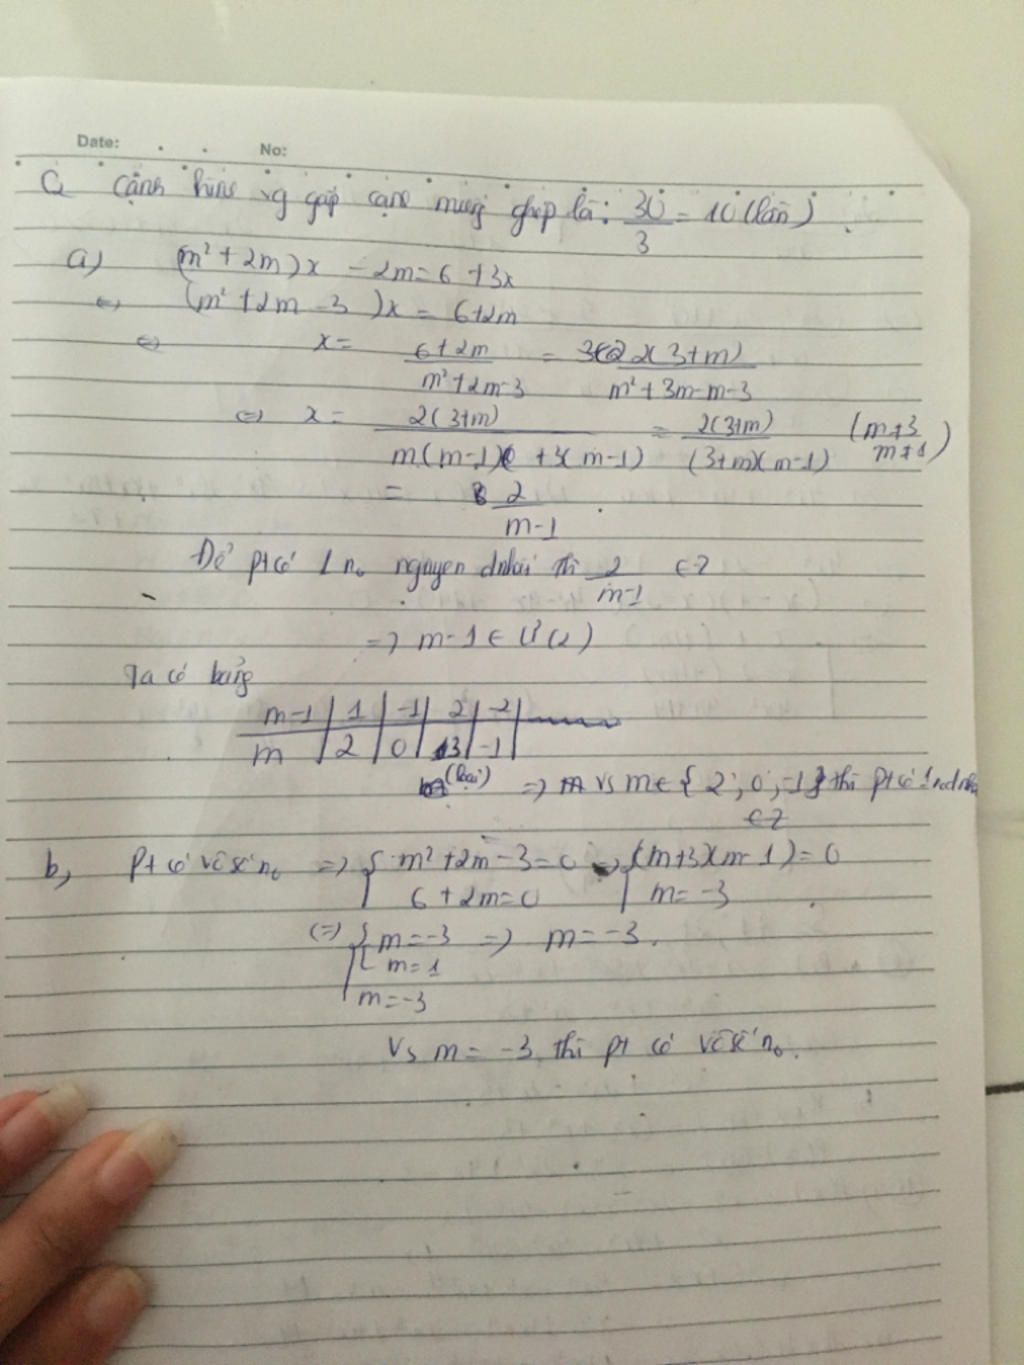 Date: . . No:
cạnh hình gấp cạnh miếng ghép là: 30/3 = 10 (lần)
a) (m² + 2m)x - 2m = 6 + 3x
⇔ (m² + 2m - 3)x = 6 + 2m
⇔ x = (6 + 2m)/(m² + 2m - 3) = 2(3+m)/(m² + 3m - m - 3)
⇔ x = 2(3+m)/(m(m-1) + 3(m-1)) = 2(3+m)/((3+m)(m-1)) (m ≠ 3 m ≠ 1)
= 2/(m-1)
Để pt có 1 n₀ nguyên thì 2/(m-1) ∈ Z
=> m-1 ∈ Ư(2)
Ta có bảng
m-1 | 1 | -1 | 2 | -2 |
m | 2 | 0 | 3 | -1 |
(loại) => vs m ∈ { 2; 0; -1 } thì pt có 1
∈ Z
b, Pt có vô số n₀ => { m² + 2m - 3 = 0 => { (m+3)(m-1) = 0
6 + 2m = 0 m = -3
(=) { [ m = -3 => m = -3.
m = 1
m = -3
Vs m = -3 thì pt có vô số n₀.